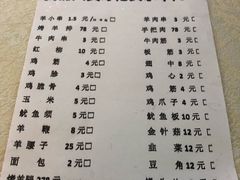 羊小串 1.5 元/
羊肉串 3 元□
烤羊排 78 元□
手把肉 78 元□
牛肉串 3 元□
牛肉筋 3 元□
红柳 10 元□
板筋 3 元□
鸡筋 2 元□
翅中 8 元□
鸡胗 3 元□
鸡心 2 元□
鸡脆骨 4 元□
鸡翅 5 元□
玉米 5 元□
鸡爪子 4 元□
鱿鱼须 5 元□
鱿鱼板 10 元□
羊鞭 8 元□
金针菇 12 元□
羊腰子 25 元□
韭菜 12 元□
面包 2 元□
豆角 12 元□